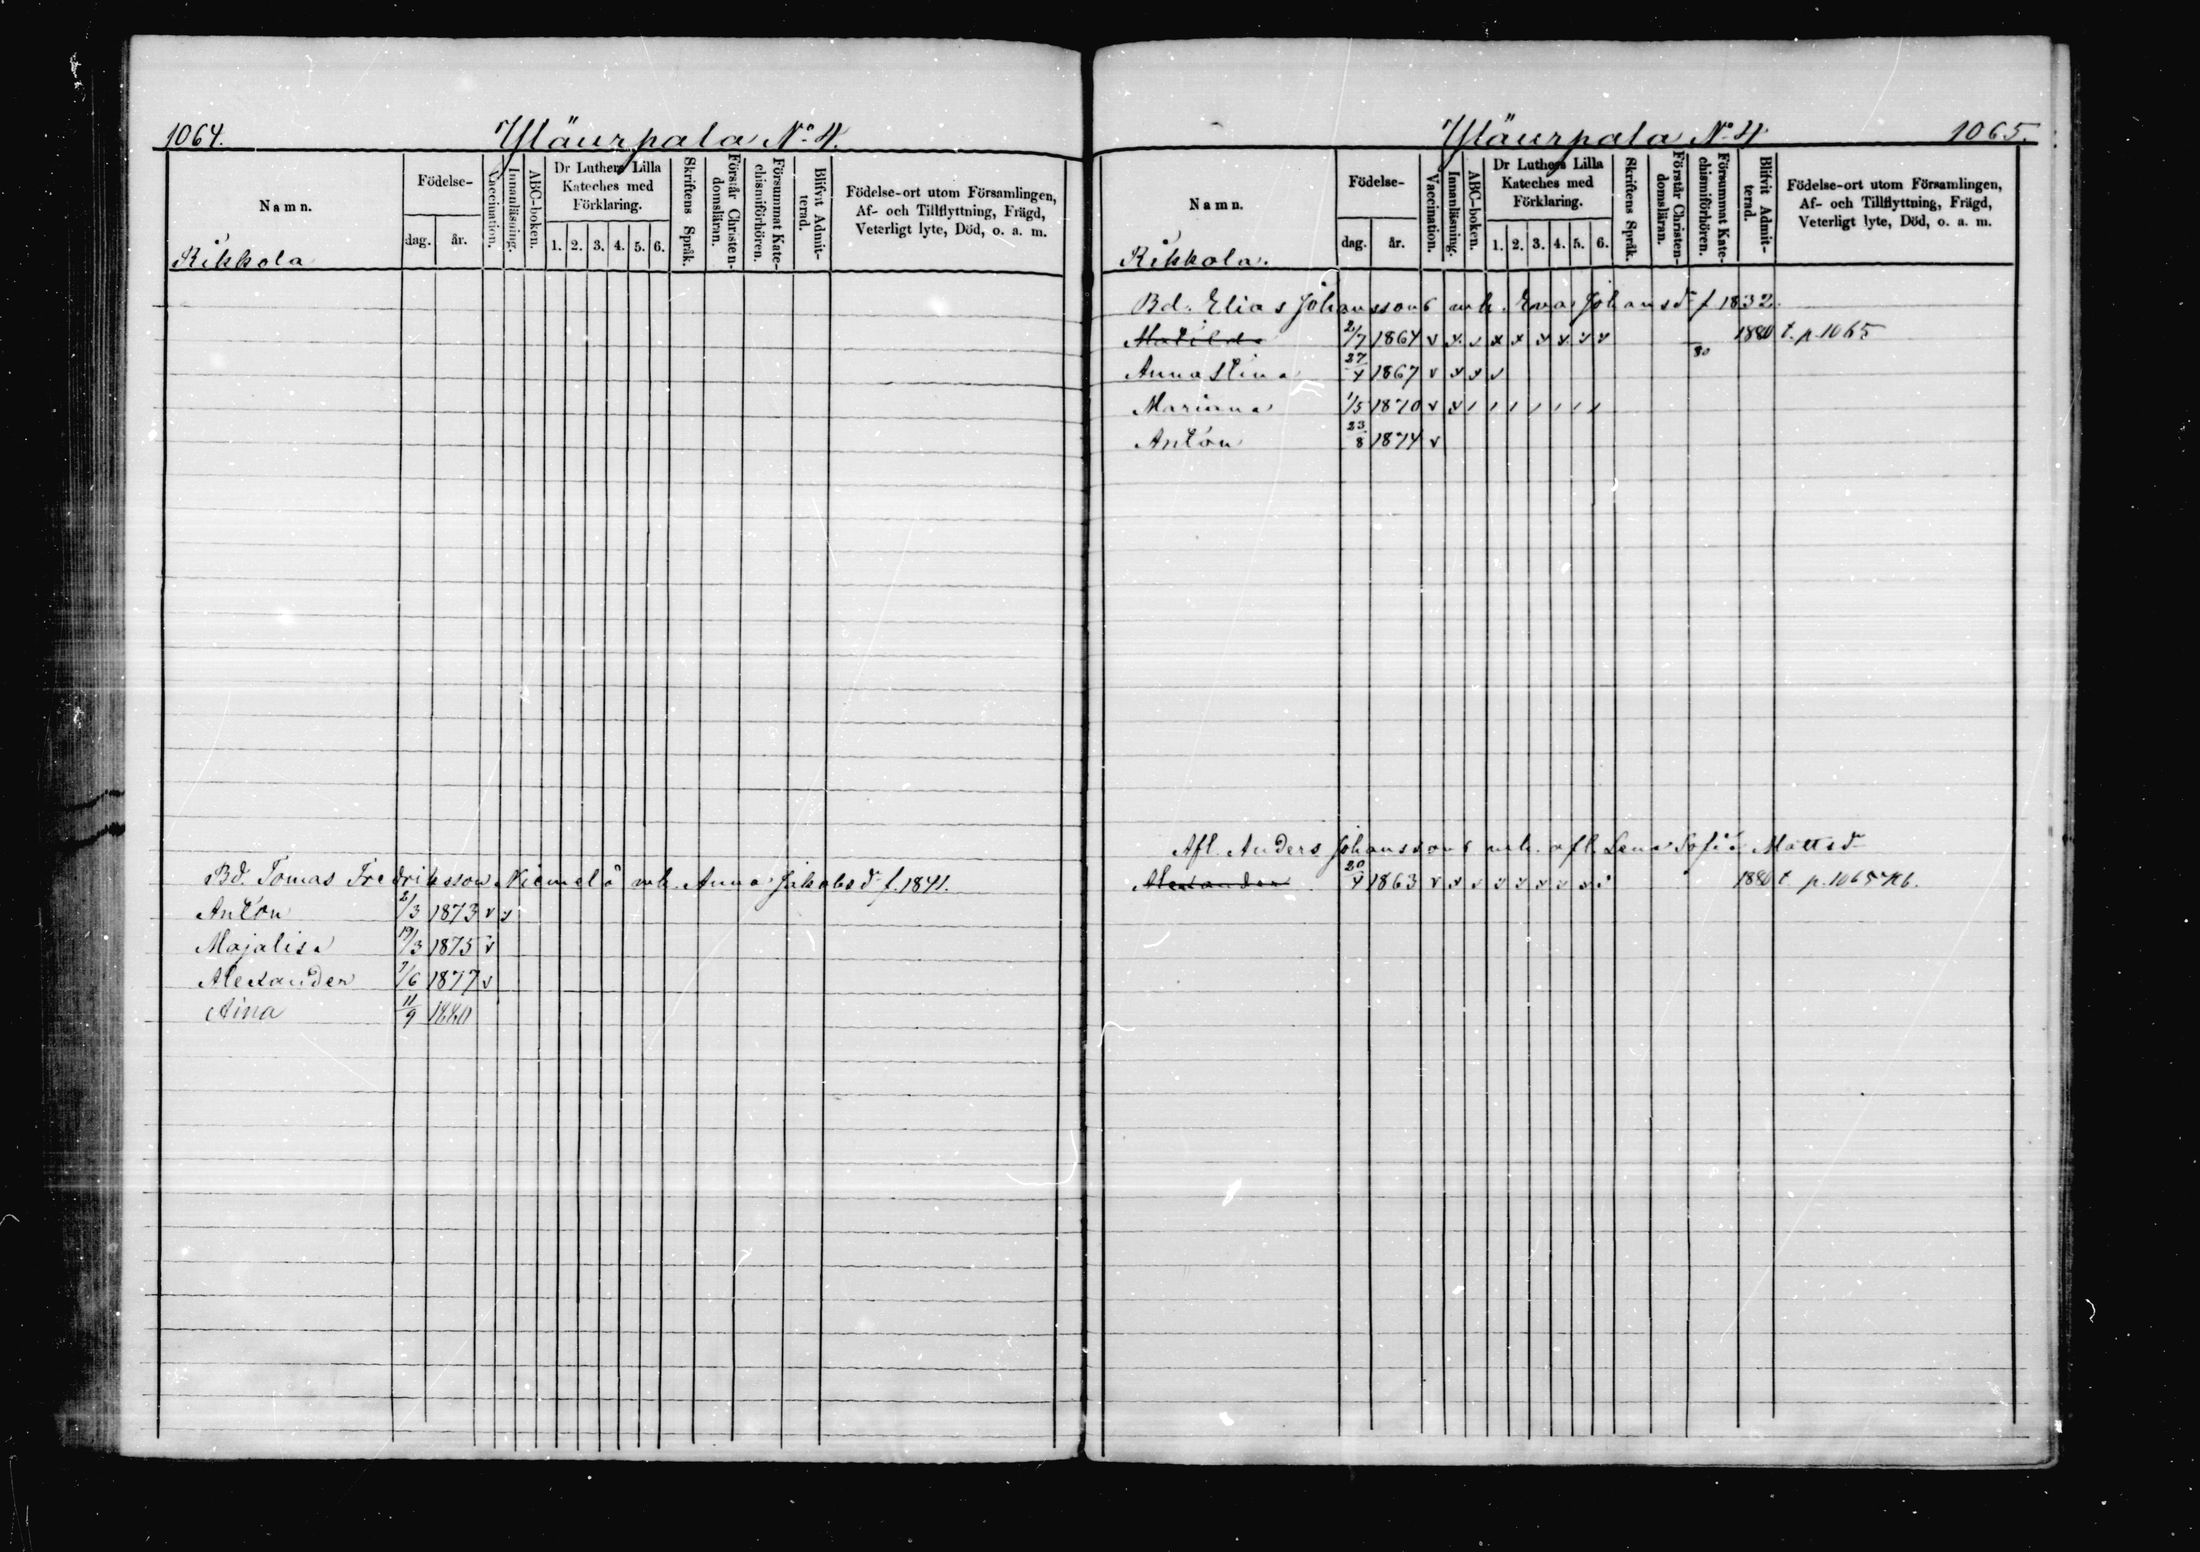 1064. Yläurpala No 4.
Namn. Födelse- Vaccination. Innanläsning. ABC-boken. Dr Luthers Lilla Kateches med Förklaring. Skriftens Språk. Förstår Christendomsläran. Försummat Katechismiförhören. Blifvit Admitterad. Födelse-ort utom Församlingen, Af- och Tillflyttning, Frägd, Veterligt lyte, Död, o. a. m.
dag. år. 1. 2. 3. 4. 5. 6.
Rikkola
Bd. Tomas Fredriksson Niemelä o mh. Anna Jakobsdr f. 1841.
Anton 2/3 1873 v v
Majalisa 19/3 1875 v
Alexander 7/6 1877 v
Aina 11/9 1880
Yläurpala No 4 1065.
Namn. Födelse- Vaccination. Innanläsning. ABC-boken. Dr Luthers Lilla Kateches med Förklaring. Skriftens Språk. Förstår Christendomsläran. Försummat Katechismiförhören. Blifvit Admitterad. Födelse-ort utom Församlingen, Af- och Tillflyttning, Frägd, Veterligt lyte, Död, o. a. m.
dag. år. 1. 2. 3. 4. 5. 6.
Rikkola.
Bd. Elias Johanssons mh. Eva Johansdr f. 1832.
Matilda 2/7 1864 v x v x x x x x x 80 1880 t. p. 1065
Anna Stina 27/4 1867 v x x v
Mariana 1/5 1870 v x / / / / / / /
Anton 23/8 1874 v
Afl. Anders Johanssons mh. afl. Lena Sofia Mattsdr
Alexander 20/4 1863 v x v x x x x x x 1880 t. p. 1065 Kb.